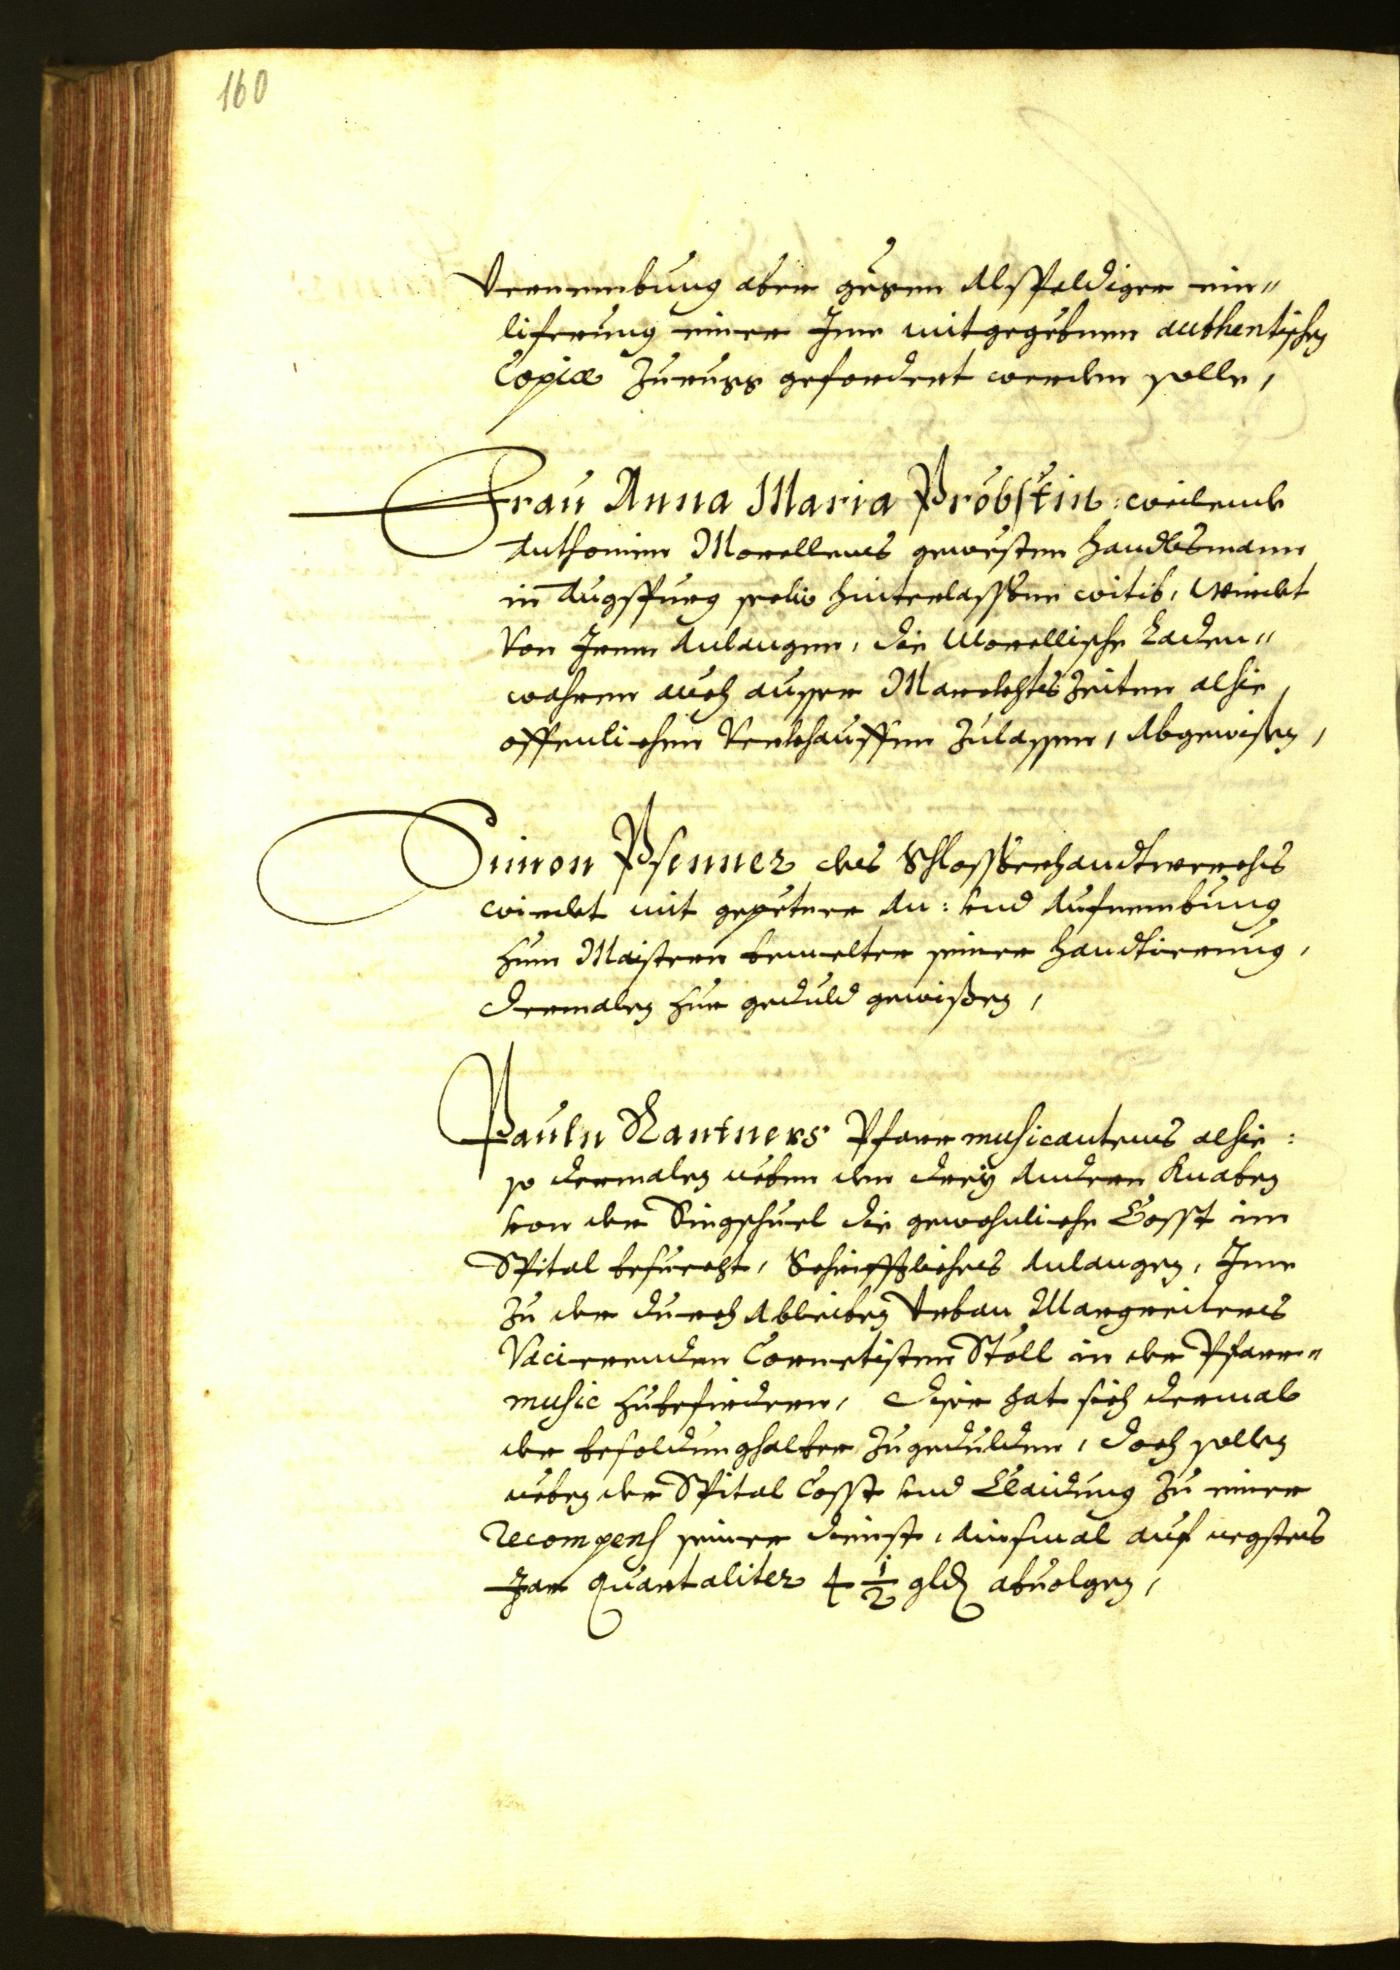 160
Vernembung aber gegen Alspaldiger ein=
liferung einer Ime mitgegebnen authentischen
Copiæ Zuruss gefordert werden solle,
Frau Anna Maria Pröbstin: weilendt
Anthonien Morellens gewesten handlsmann
in Augspurg selig hinterlassner witib, wirdet
Von Irem Anlangen, die Morellische Laden=
wahren auch ausser Marckhts Zeiten alhie,
offentlichen Verkhauffen Zulassen, Abgewisen,
Simon Psenner des Schlosserhandtwerchs
wirdet mit gepetner An: und Aufnembung
zum Maistern bemelter seiner handtierung,
dermalen zur geduld gewisen,
Pauln Rantners Pfarr musicantens alhie:
so dermalen neben den drey Andern Knaben
von der Singschuel die gewohnliche Cosst im
Spital besuecht, Schrifftliches Anlangen, Ime
Zu der durch Ableiben Urban Margreiters
Vacierenden Cornetisten Stöll in der Pfarr=
music zubefürdern, diser hat sich dermal
der besoldung halber Zugedulden, doch sollen
neben der Spital Cosst und Claidung Zu einer
recompens seiner dienst, Ainsmal auf negstes
Jar quartaliter 4 1/2 gld abuolgen,